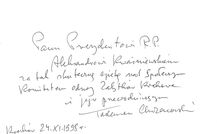 Panu Prezydentowi R.P.
Aleksandrowi Kwaśniewskiemu
za tak skuteczną opiekę nad Społecznym
Komitetem odnowy Zabytków Krakowa
i jego przewodniczącym
Tadeusz Chrzanowski
Kraków 24.XI.1998 r.